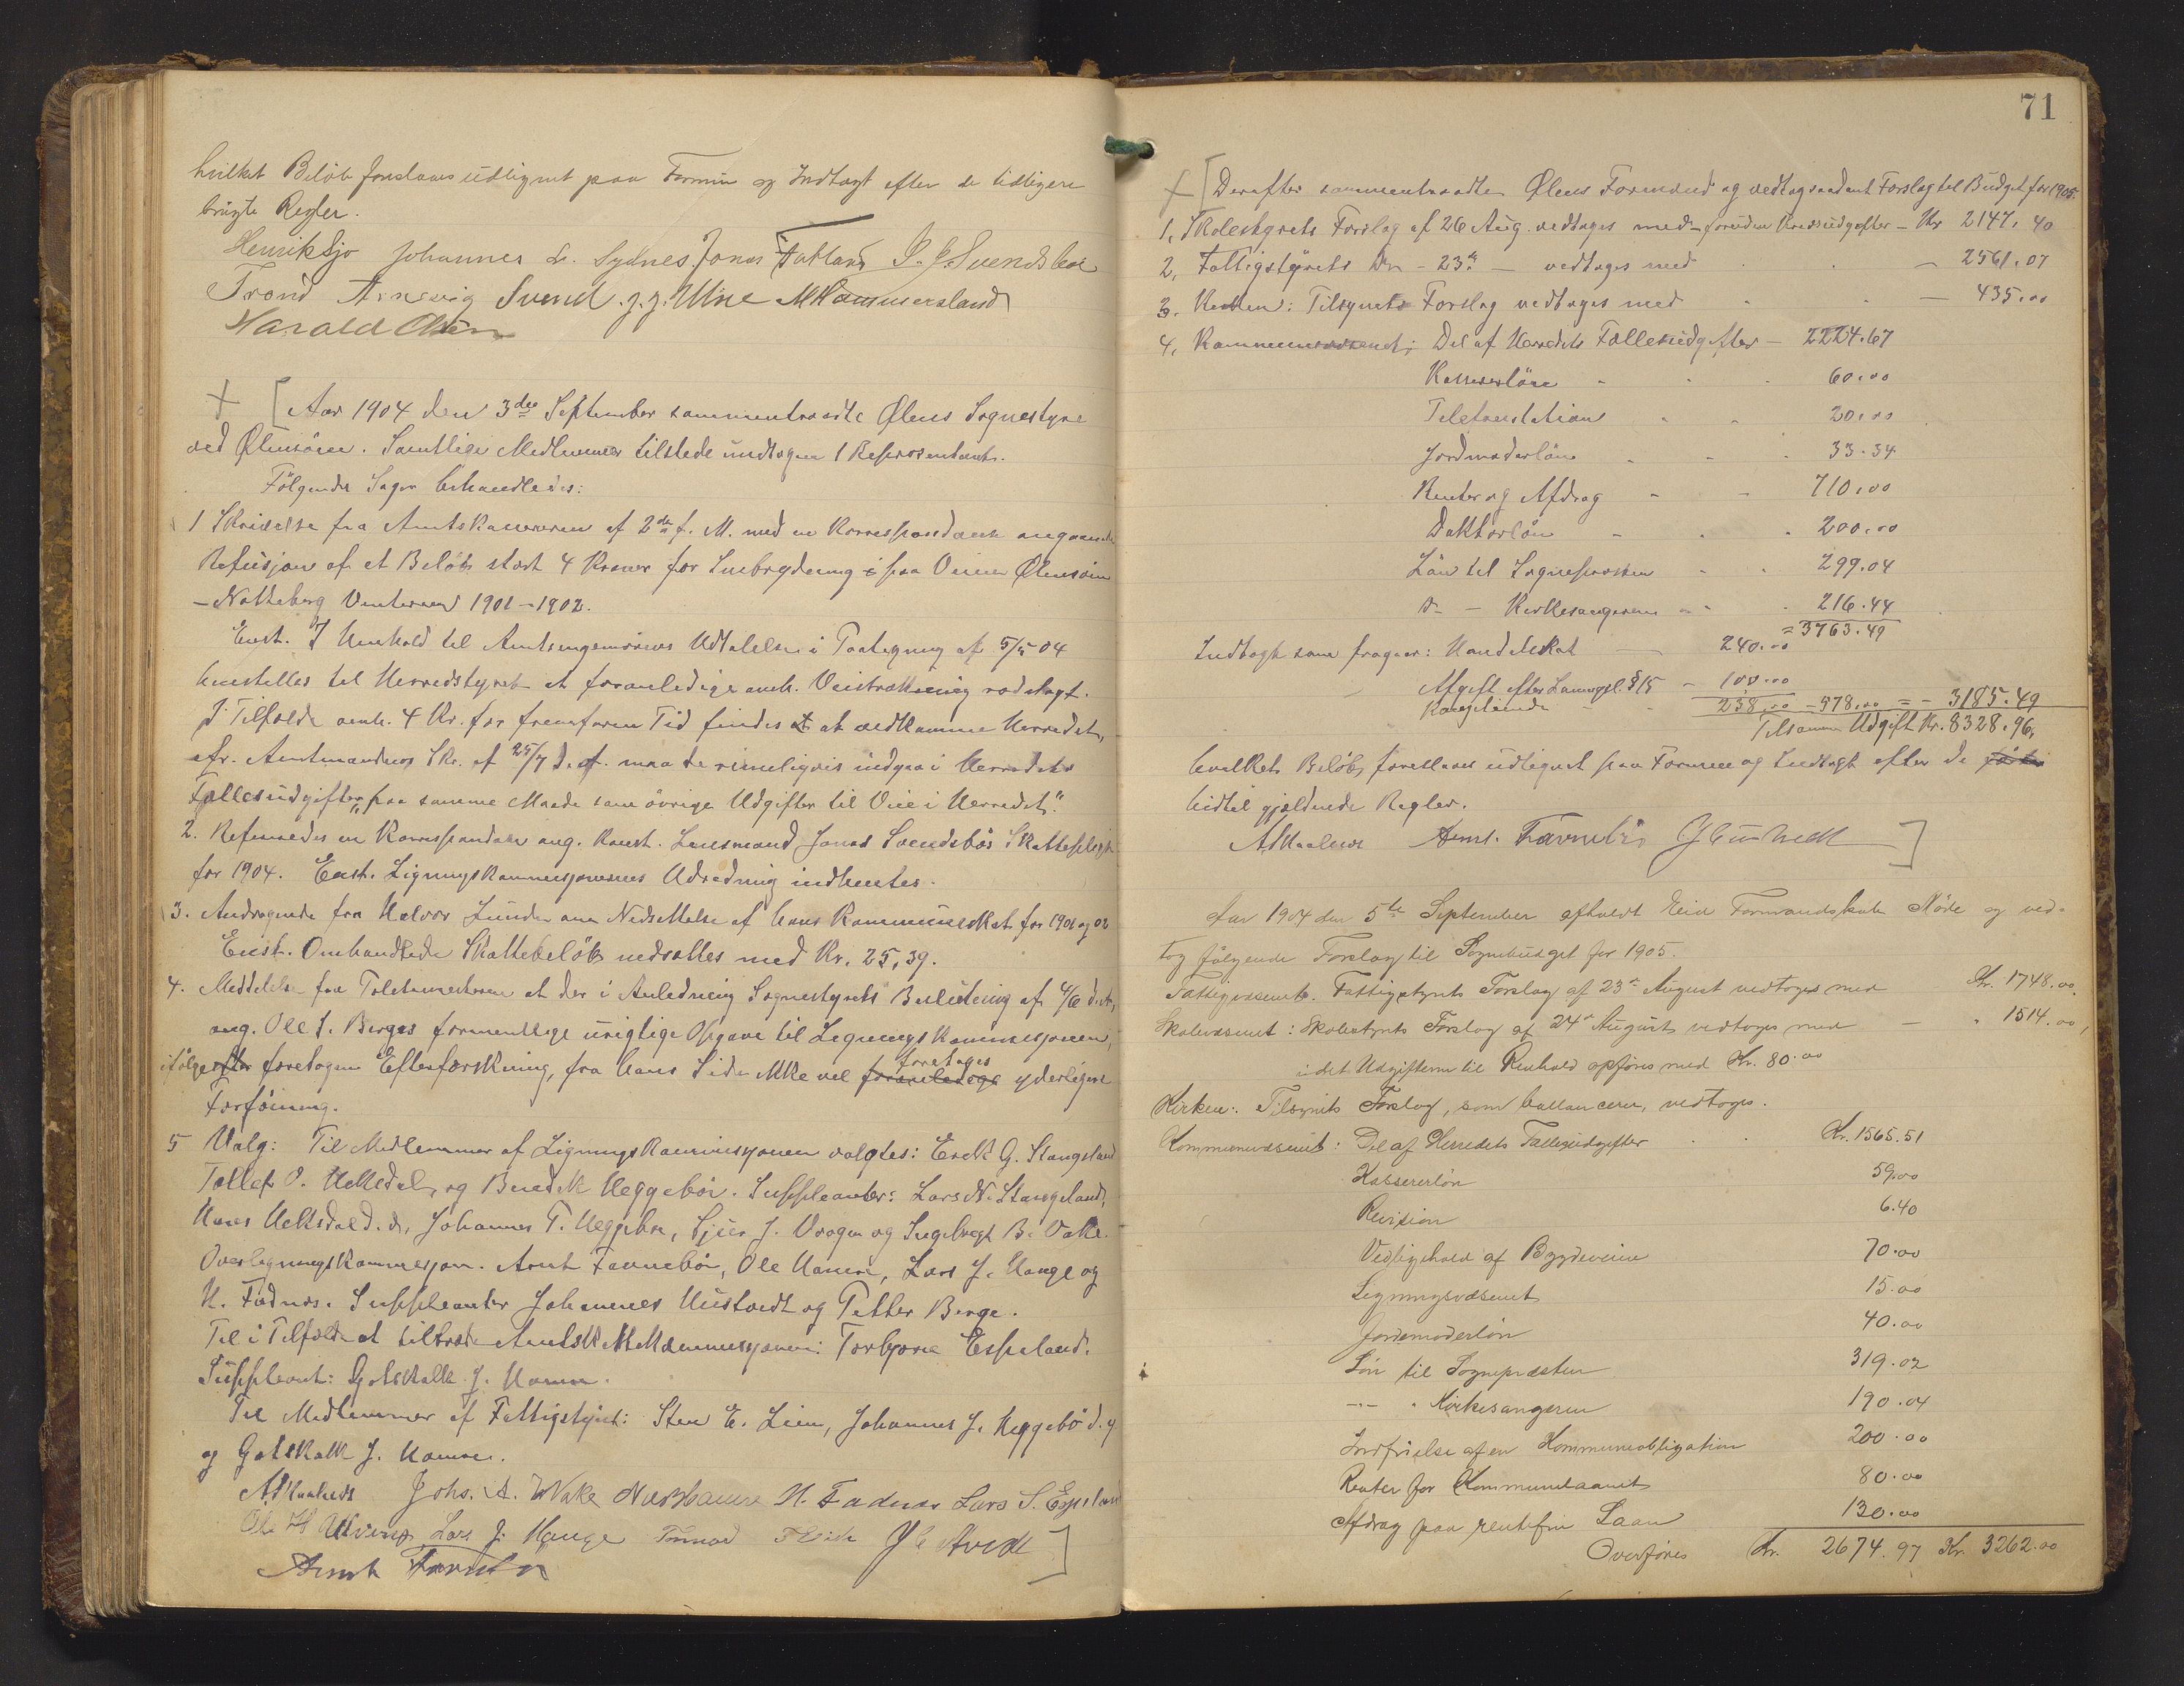 hvilket Beløb foreslaaes udlignet paa Formue og Indtægt efter de tidligere
brugte Regler.
Henrik Sjo Johannes L. Sydnes Jonas Fatland J. J. Svendsbøe
Trond Arnevig Svend J. J. Utne M Hammersland
Harald Olsen
+ [ Aar 1904 den 3die September sammentraadte Ølens Sognestyre
ved Ølensøen. Samtlige Medlemmer tilstede undtagen 1 Repræsentant.
Følgende Sager behandledes:
1 Skrivelse fra Amtskassereren af 2den f. M. med en Korrespondance angaaende
Refusjon af et Beløb stort 4 Kroner for Snebrydning i paa Veien Ølensøen
– Notteberg Vinteren 1901–1902.
Enst. I Henhold til Amtsingeniørens Udtalelse i Paategning af 5/5 04
henstilles til Herredstyret at foranledige omh. Veistrækning nedlagt.
I Tilfælde omh. 4 Kr. for fremfaren Tid findes at vedkomme Herredet,
cfr. Amtmandens Skr. af 25/7 d. A. maa de rimeligvis indgaa i Herredets
Fællesudgifter "paa samme Maade som øvrige Udgifter til Veie i Herredet".
2. Refereredes en Korrespondance ang. Konst. Lensmand Jonas Svendsbøs Skattepligt
for 1904. Enst. Ligningskommisjonernes Udredning indhentes.
3. Andragende fra Halvor Lunde om Nedsættelse af hans Kommuneskat for 1901 og 02
Enst. Omhandlede Skattebeløb nedsættes med Kr. 25,39.
4. Meddelelse fra at der i Anledning Sognestyrets Beslutning af 4/6 d. A.,
ang. Ole S. Berges formentlige urigtige Opgave til Ligningskommisjonen,
ifølge efter foretagen Efterforskning, fra hans Side ikke vil foranledige foretages yderligere
Forføining.
5 Valg: Til Medlemmer af Ligningskommisjonen valgtes: Erik G. Stangeland
Tollef O. Hetlesdal, og Benedik Heggebøe. Suppleanter: Lars N. Stangeland,
Hans d. æ, Johannes T. Heggebøe, Sjur J. Vaagen og Ingebregt B. Vake.
Overligningskommisjon. Arnt Tavnebøe, Ole Hamre, Lars J. Hauge og
H. Fadnes. Suppleanter Johannes Hustvedt og Petter Berge.
Til i Tilfælde at tiltræde Amtsskattekommisjonen: Torbjørn Espeland.
Suppleant: Gotskalk J. Hamre.
Til Medlemmer af Fattigstyret: Sten E. Lien, Johannes J. Heggebø d. y
og Gotskalk J. Hamre.
Johs. A. Wake H. Fadnes Lars S. Espeland
Lars J. Hauge
Arnt Tavnebø ]
71
+ [ Derefter sammentraadte Ølens Formænd og vedtog saadant Forslag til Budget for 1905.
1, Skolestyrets Forslag af 26 Aug. vedtages med – foruden Kredsudgifter – Kr 2147, 40
2, Fattigstyrets Do – 23de – vedtages med – 2561.07
3. Kirken: Tilsynets Forslag vedtages med – 435,00
4, Kommunevæsenet; Del af Herredets Fællesudgifter – 2224.67
Kassererløn – 60,00
Telefonstation – 20,00
Jordmoderløn – 33.34
Renter og Afdrag – 710,00
Doktorløn – 200,00
Løn til Sognepresten – 299.04
Do – Kirkesangeren – 216.44
= 3763.49
Indtægt som fragaar: Handelsskat – 240.00
Afgift efter Lovens §15 – 100.00
238.00 – 578,00 = – 3185.49
Tilsammen Udgift Kr. 8328.96,
hvilket Beløb foreslaaes udlignet paa Formue og Indtægt efter de
hidtil gjældende Regler.
Arnt. Tavnebø ]
Aar 1904 den 5te September afholdt Eid Formandskab Møde og ved-
tog følgende Forslag til Sognebudget for 1905.
Fattigvæsenet. Fattigstyrets Forslag af 23de August vedtoges med Kr. 1748.00.
Skolevæsenet: Skolestyrets Forslag af 24de August vedtoges med – " 1514.00,
idet Udgifterne til Renhold opføres med Kr. 80.00
Kirken: Tilsynets Forslag, som ballancerer, vedtoges.
Kommunevæsenet: Del af Herredets Fællesudgifter Kr. 1565.51
Kassererløn 59.00
Revision 6.40
Vedligehold af Bygdeveiene 70.00
Ligningsvæsenet 15.00
Jordemoderløn 40.00
Løn til Sognepresten 319.02
–"– " Kirkesangeren 190.04
Indfrielse af en Kommuneobligation 200.00
Renter for Kommunelaanet 80.00
Afdrag paa rentefri Laan 130.00
Overføres Kr. 2674.97 Kr. 3262.00